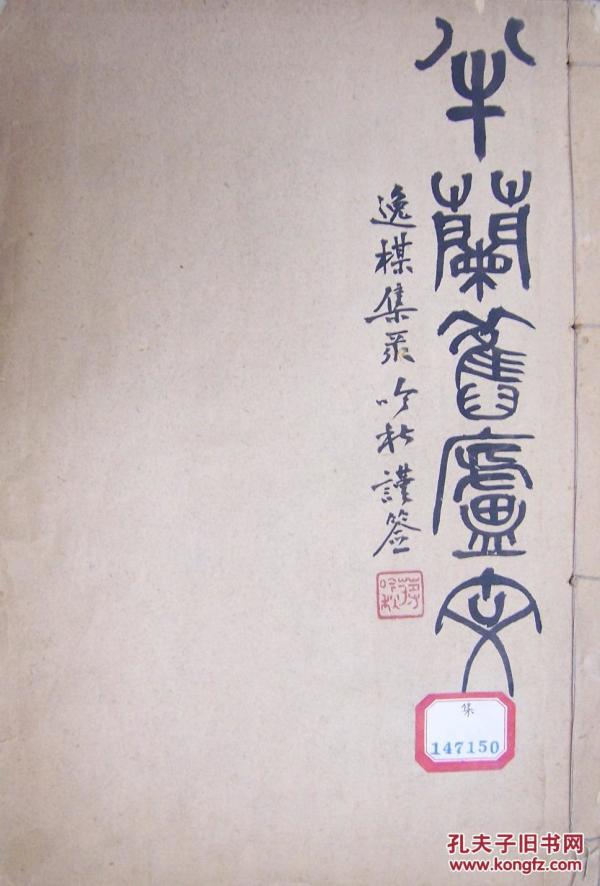 半蘭舊廬文
逸楳集 吟秋謹簽
蔣吟秋
集
147150
孔夫子旧书网
www.kongfz.com